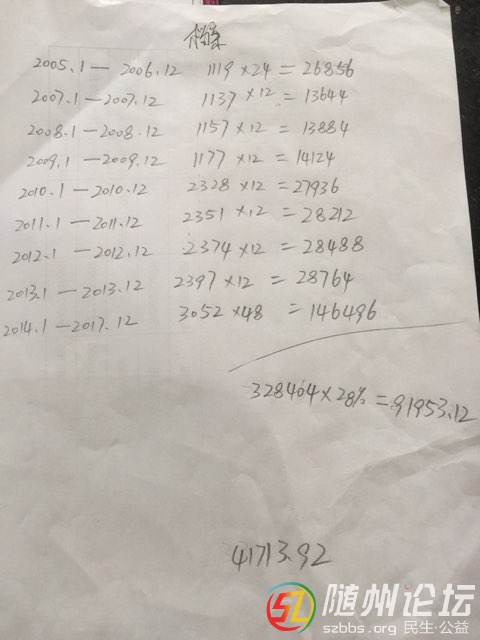 2005.1—2006.12 1119×24=26856
2007.1—2007.12 1137×12=13644
2008.1—2008.12 1157×12=13884
2009.1—2009.12 1177×12=14124
2010.1—2010.12 2328×12=27936
2011.1—2011.12 2351×12=28212
2012.1—2012.12 2374×12=28488
2013.1—2013.12 2397×12=28764
2014.1—2017.12 3052×48=146496
328404×28%=91953.12
41713.92
随州论坛
szbbs.org 民生·公益